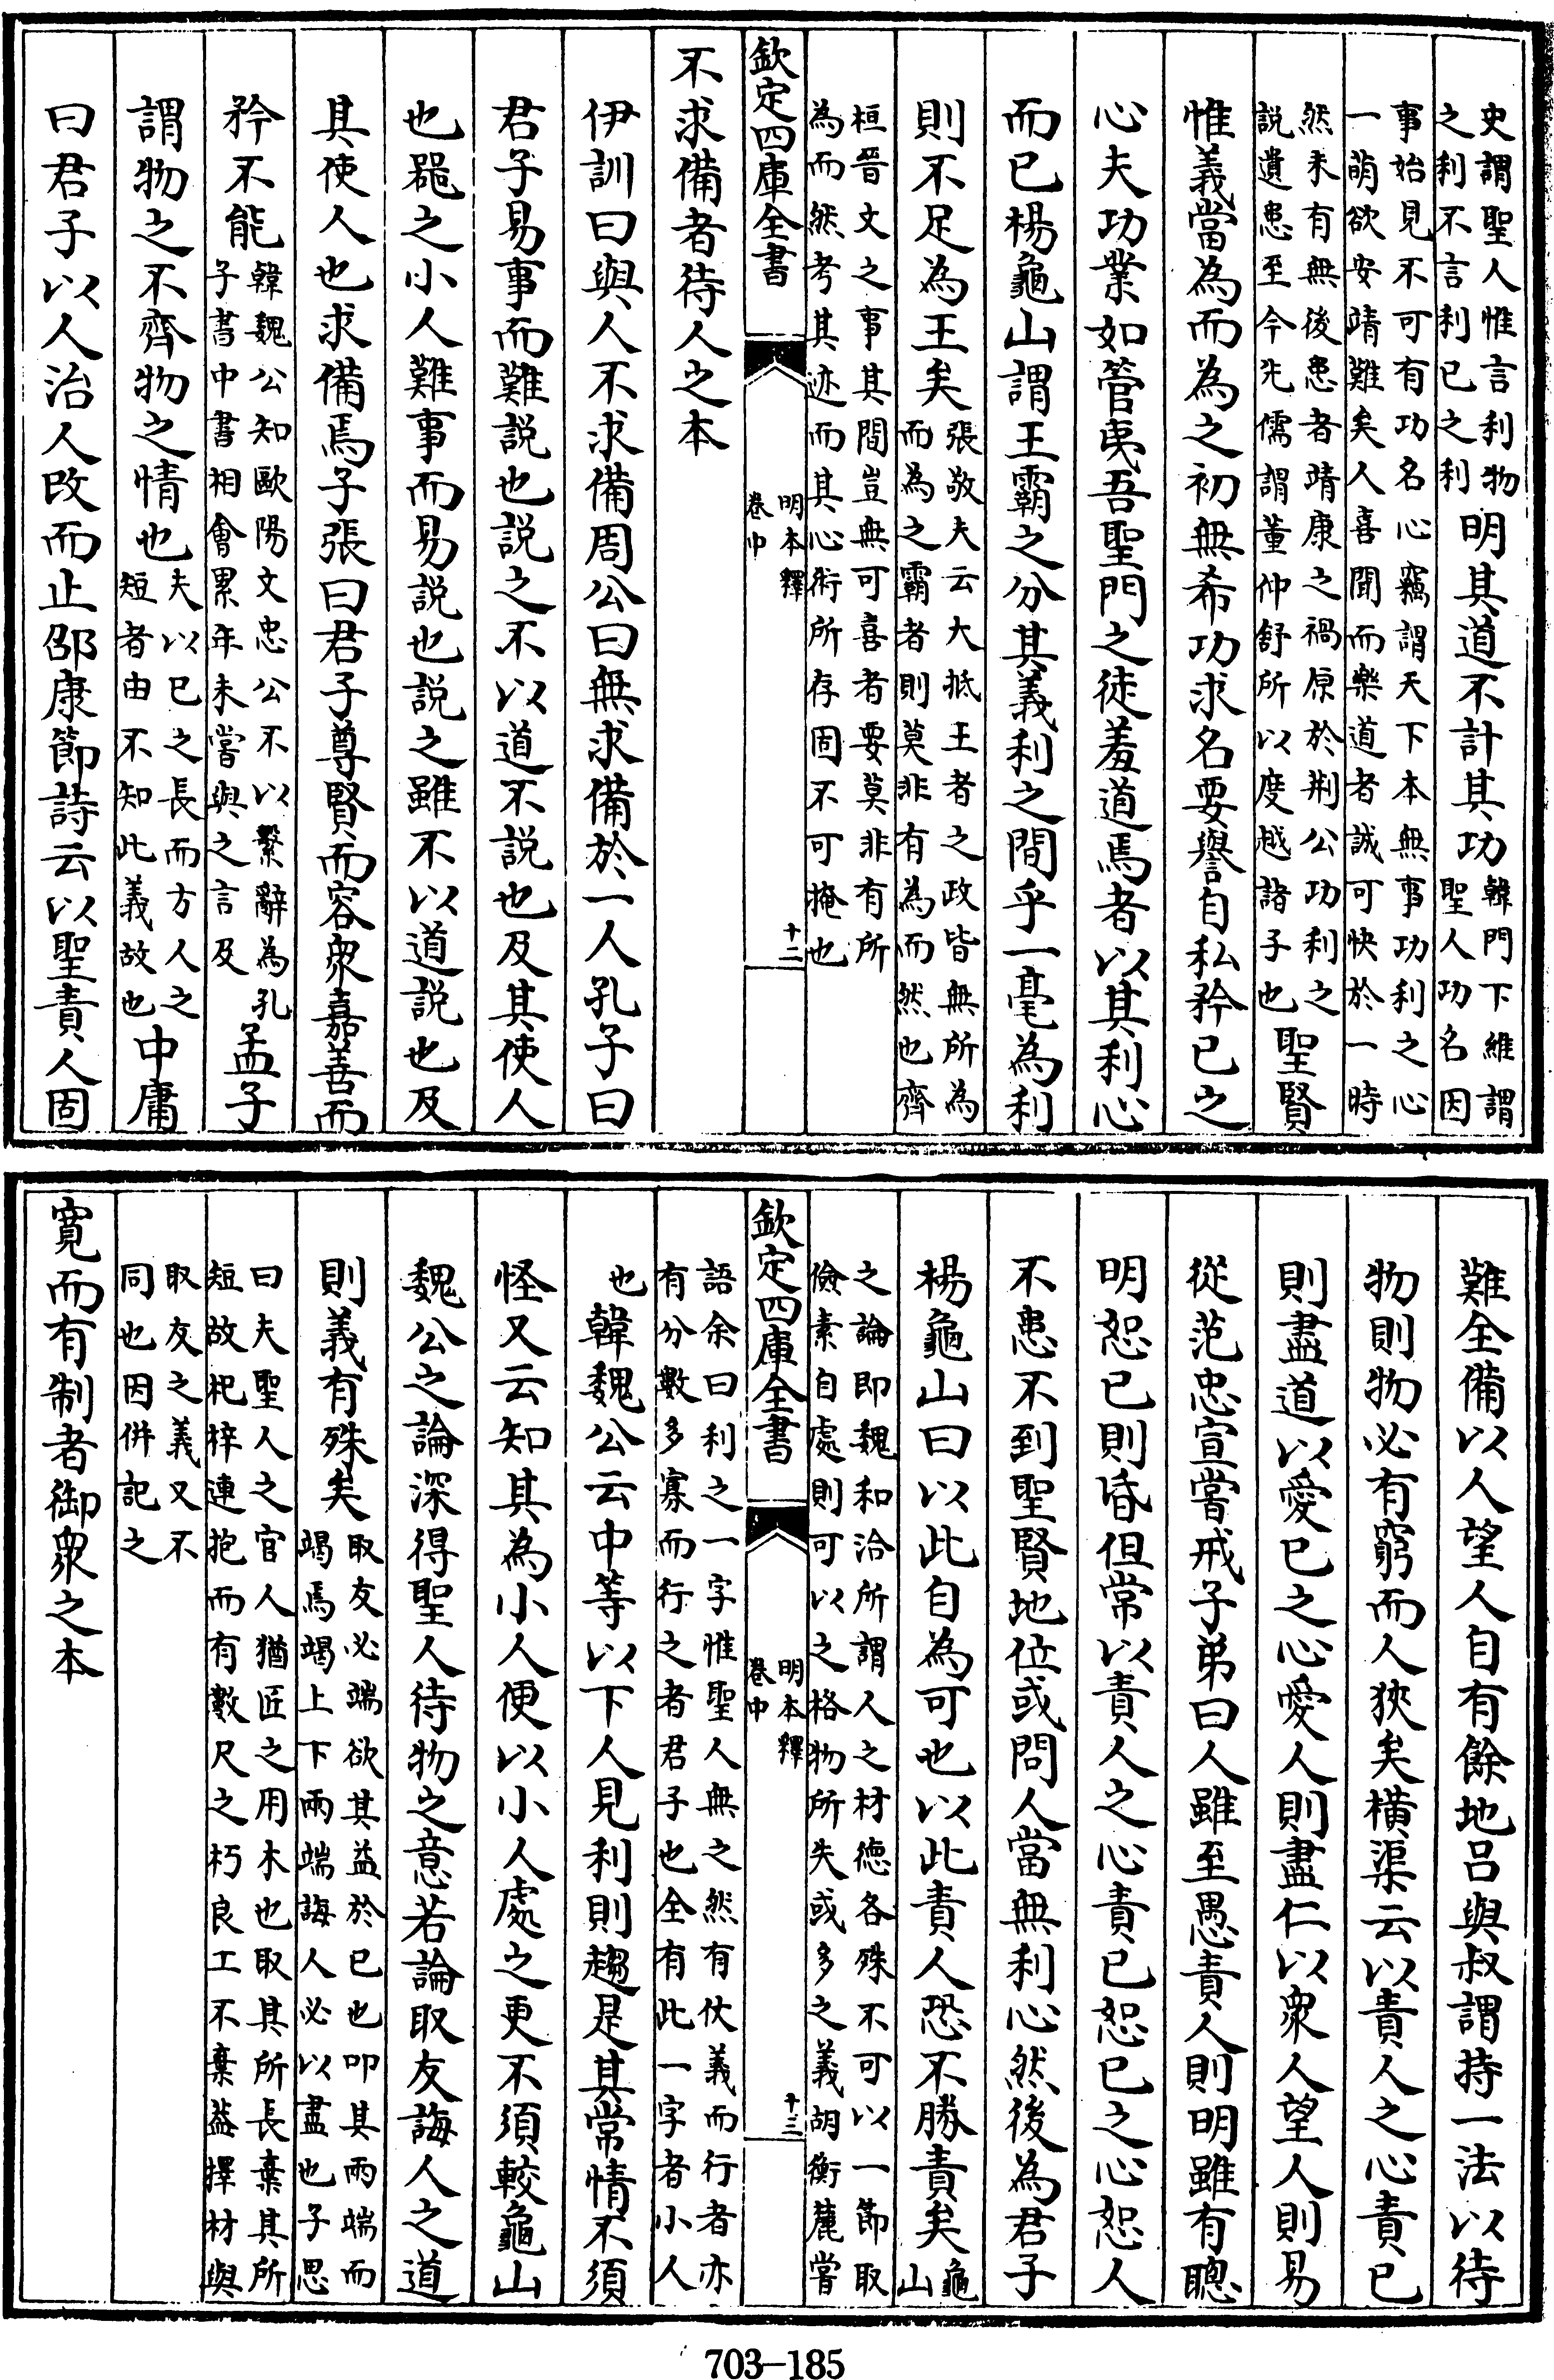 史謂聖人惟言利物
之利不言利已之利
明其道不計其功
韓門下維謂
聖人功名因
事始見不可有功名心竊謂天下本無事功利之心
一萌欲安靖難矣人喜聞而樂道者誠可快於一時
然未有無後患者靖康之禍原於荆公功利之
説遺患至今先儒謂董仲舒所以度越諸子也
聖賢
惟義當為而為之初無希功求名要譽自私矜已之
心夫功業如管夷吾聖門之徒羞道焉者以其利心
而已楊龜山謂王霸之分其義利之間乎一毫為利
則不足為王矣
張敬夫云大抵王者之政皆無所為
而為之霸者則莫非有為而然也齊
桓晉文之事其間豈無可喜者要莫非有所
為而然考其迹而其心術所存固不可掩也
欽定四庫全書
明本釋
卷中
十二
不求備者待人之本
伊訓曰與人不求備周公曰無求備於一人孔子曰
君子易事而難説也説之不以道不説也及其使人
也器之小人難事而易説也説之雖不以道説也及
其使人也求備焉子張曰君子尊賢而容衆嘉善而
矜不能
韓魏公知歐陽文忠公不以繫辭為孔
子書中書相會累年未嘗與之言及
孟子
謂物之不齊物之情也
夫以已之長而方人之
短者由不知此義故也
中庸
曰君子以人治人改而止邵康節詩云以聖責人固
難全備以人望人自有餘地吕與叔謂持一法以待
物則物必有窮而人狹矣橫渠云以責人之心責已
則盡道以愛已之心愛人則盡仁以衆人望人則易
從范忠宣嘗戒子弟曰人雖至愚責人則明雖有聰
明恕已則昏但常以責人之心責已恕已之心恕人
不患不到聖賢地位或問人當無利心然後為君子
楊龜山曰以此自為可也以此責人恐不勝責矣
龜
山
之論即魏和洽所謂人之材德各殊不可以一節取
儉素自處則可以之格物所失或多之義胡衡麓嘗
欽定四庫全書
明本釋
卷中
十三
語余曰利之一字惟聖人無之然有仗義而行者亦
有分數多寡而行之者君子也全有此一字者小人
也
韓魏公云中等以下人見利則趨是其常情不須
怪又云知其為小人便以小人處之更不須較龜山
魏公之論深得聖人待物之意若論取友誨人之道
則義有殊矣
取友必端欲其益於已也叩其兩端而
竭焉竭上下兩端誨人必以盡也子思
曰夫聖人之官人猶匠之用木也取其所長棄其所
短故杞梓連抱而有數尺之朽良工不棄葢擇材與
取友之義又不
同也因併記之
寛而有制者御衆之本
703—185